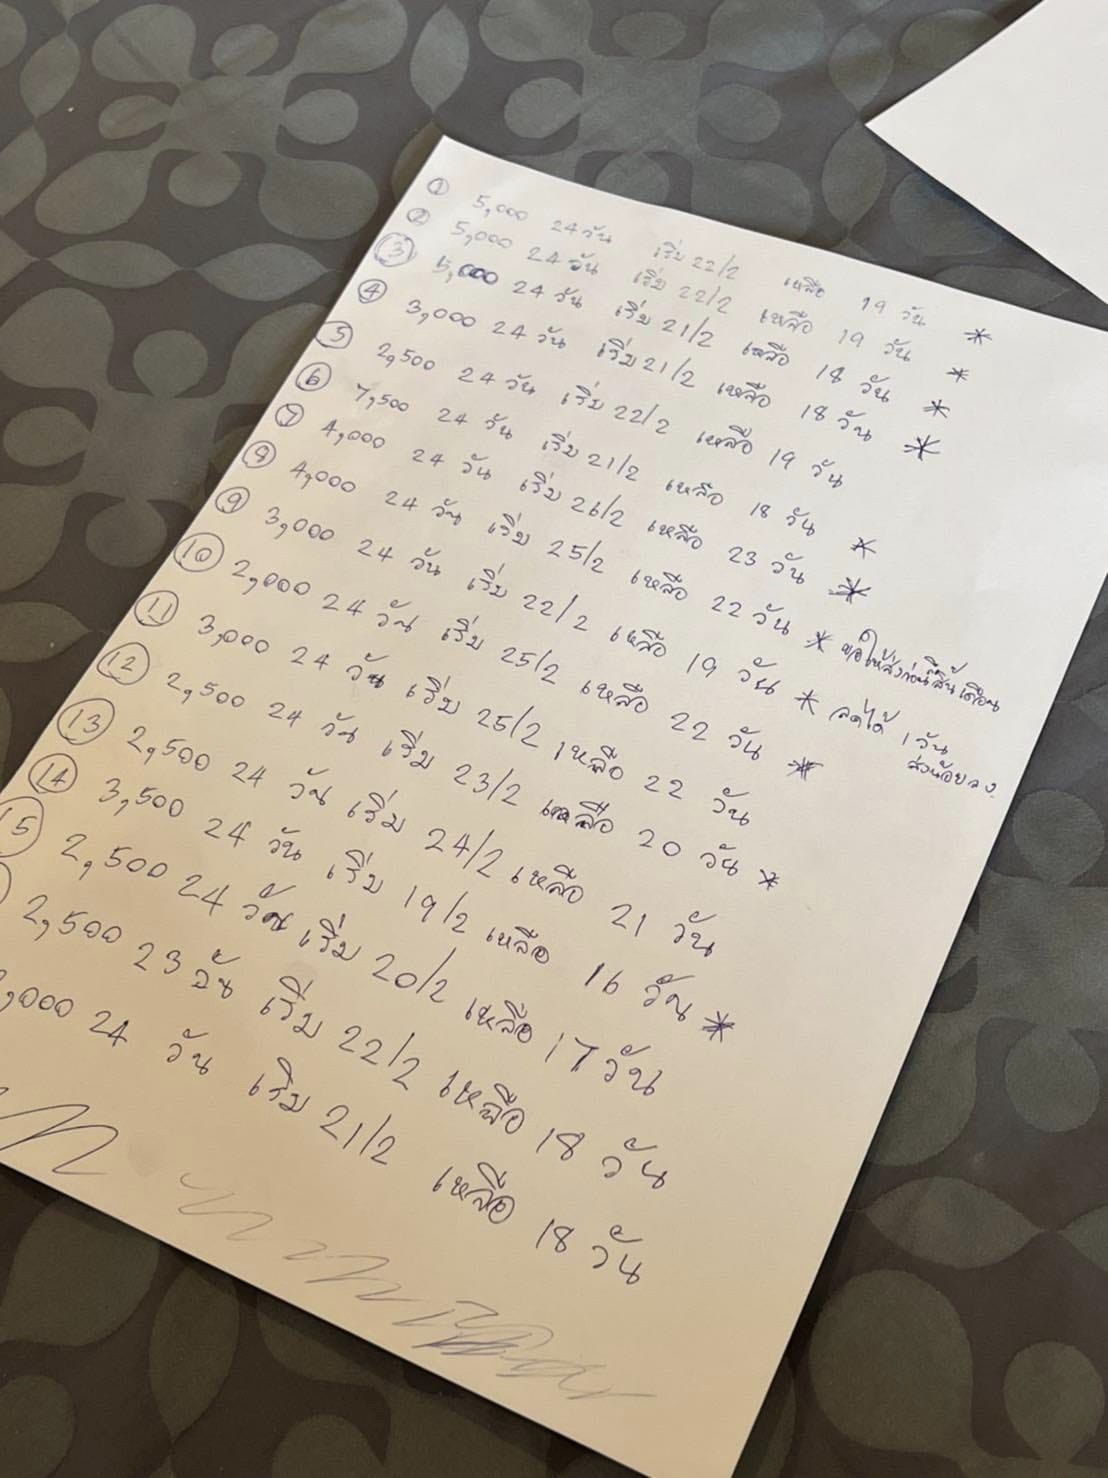 ① 5,000 24 วัน เริ่ม 22/2 เหลือ 19 วัน *
② 5,000 24 วัน เริ่ม 22/2 เหลือ 19 วัน *
③ 5,000 24 วัน เริ่ม 21/2 เหลือ 18 วัน *
④ 3,000 24 วัน เริ่ม 21/2 เหลือ 18 วัน *
⑤ 2,500 24 วัน เริ่ม 22/2 เหลือ 19 วัน
⑥ 7,500 24 วัน เริ่ม 21/2 เหลือ 18 วัน *
⑦ 4,000 24 วัน เริ่ม 26/2 เหลือ 23 วัน *
⑧ 4,000 24 วัน เริ่ม 25/2 เหลือ 22 วัน * ขอให้ส่งก่อนสิ้นเดือน
⑨ 3,000 24 วัน เริ่ม 22/2 เหลือ 19 วัน * ลดได้ 1 วัน
ส่งน้อยลง
⑩ 2,000 24 วัน เริ่ม 25/2 เหลือ 22 วัน *
⑪ 3,000 24 วัน เริ่ม 25/2 เหลือ 22 วัน
⑫ 2,500 24 วัน เริ่ม 23/2 เหลือ 20 วัน *
⑬ 2,500 24 วัน เริ่ม 24/2 เหลือ 21 วัน
⑭ 3,500 24 วัน เริ่ม 19/2 เหลือ 16 วัน *
⑮ 2,500 24 วัน เริ่ม 20/2 เหลือ 17 วัน
2,500 23 วัน เริ่ม 22/2 เหลือ 18 วัน
,000 24 วัน เริ่ม 21/2 เหลือ 18 วัน